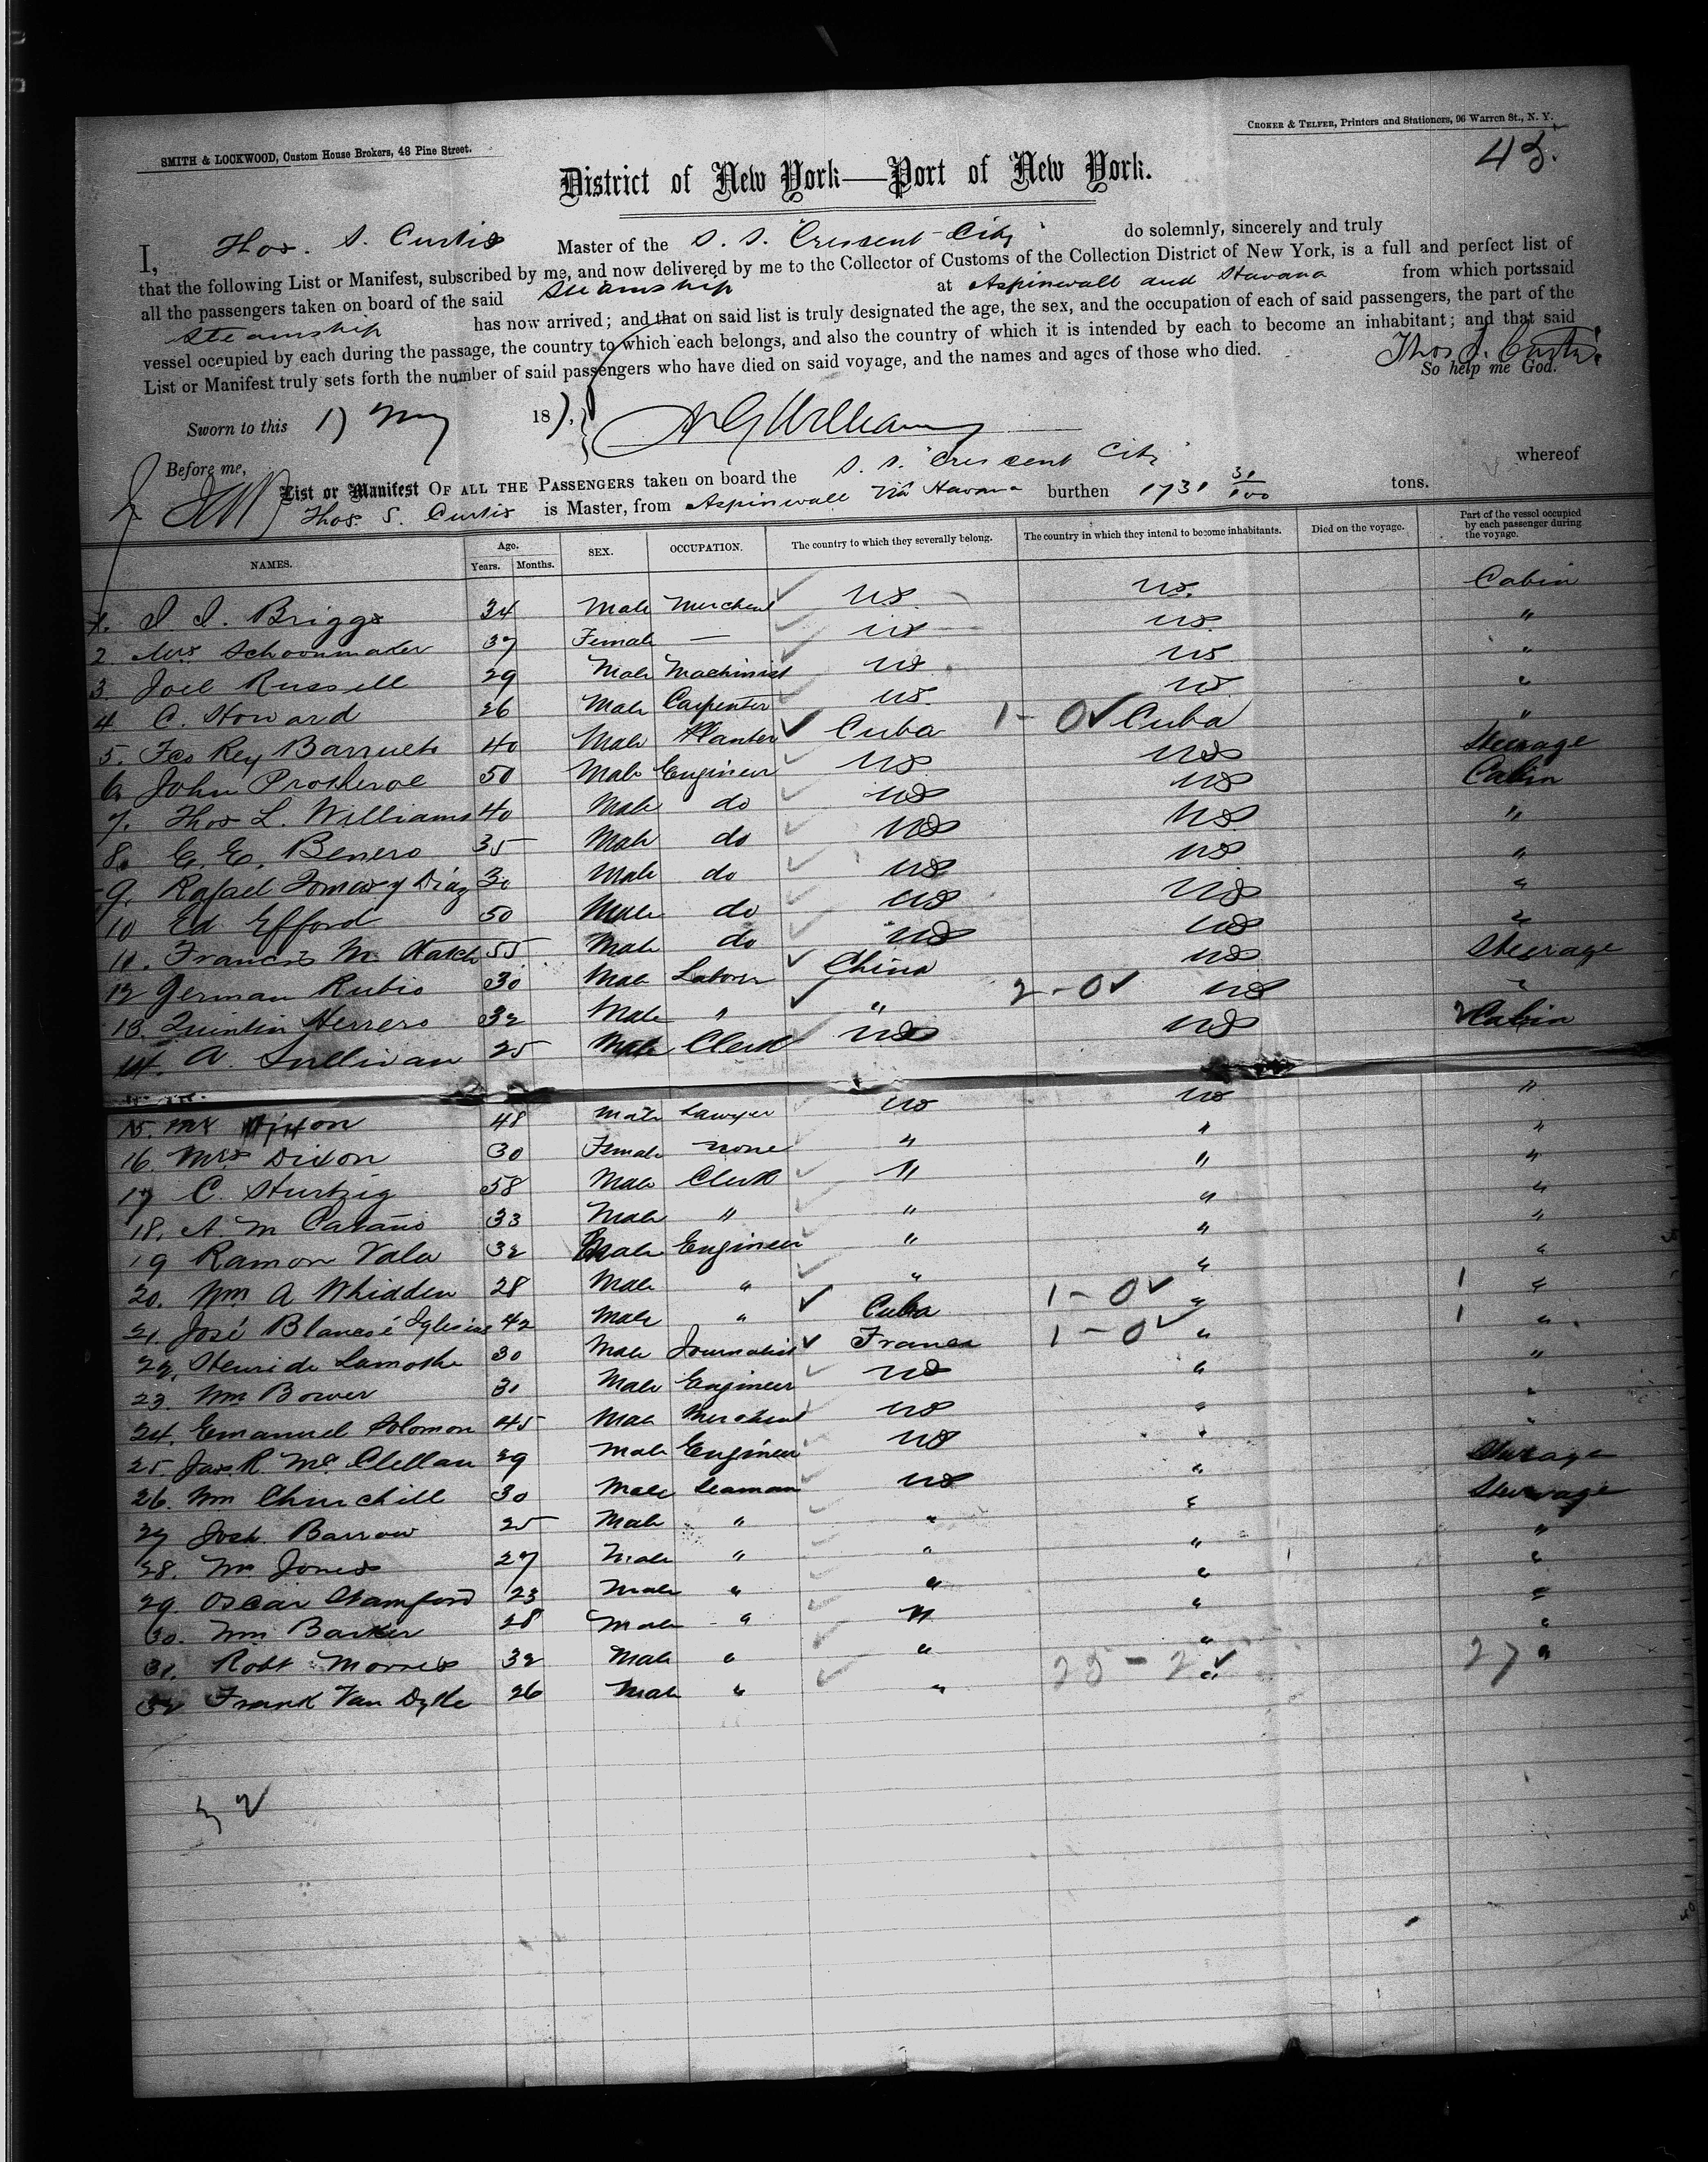 SMITH & LOOKWOOD, Custom House Brokers, 48 Pine Street.
CROKER & TELFER, Printers and Stationers, 96 Warren St., N. Y.
District of New York—Port of New York.
I, Thos. S. Curtis Master of the S. S. "Crescent City" do solemnly, sincerely and truly
that the following List or Manifest, subscribed by me, and now delivered by me to the Collector of Customs of the Collection District of New York, is a full and perfect list of
all the passengers taken on board of the said Steamship at Aspinwall and Havana from which ports said
Steamship has now arrived; and that on said list is truly designated the age, the sex, and the occupation of each of said passengers, the part of the
vessel occupied by each during the passage, the country to which each belongs, and also the country of which it is intended by each to become an inhabitant; and that said
List or Manifest truly sets forth the number of said passengers who have died on said voyage, and the names and ages of those who died.
Thos S. Curtis
So help me God.
Sworn to this 17 May 187
Before me,
List or Manifest OF ALL THE PASSENGERS taken on board the S. S. "Crescent City" whereof
Thos. S. Curtis is Master, from Aspinwall via Havana burthen 1731 31/100 tons.
NAMES. Age. Years. Months. SEX. OCCUPATION. The country to which they severally belong. The country in which they intend to become inhabitants. Died on the voyage. Part of the vessel occupied by each passenger during the voyage.
1. I. I. Briggs 34 Male Merchant US US. Cabin
2. Mrs Schoonmaker 37 Female — US US "
3. Joel Russell 29 Male Machinist US US "
4 C. Howard 26 Male Carpenter US. US "
5. Fco Rey Barruets 40 Male Planter Cuba 1-0 Cuba "
6. John Protheroe 50 Male Engineer US US Steerage
7. Thos L. Williams 40 Male do US US Cabin
8. E. E. Benero 35 Male do US US "
9. Rafael Tomas y Diaz 30 Male do US US "
10 Ed Efford 50 Male do US US "
11. Francis M. Hatch 55 Male do US US "
12 German Rubio 30 Male Laborer China US Steerage
13. Quintin Herrero 32 Male " " 2-0 US "
14. A. Sullivan 25 Male Clerk US US Cabin
15. Mr Dixon 48 Male Lawyer US US "
16. Mrs Dixon 30 Female none " " "
17 C. Hurtzig 58 Male Clerk " " "
18. A. M 33 Male " " " "
19 Ramon Vala 32 Male Engineer " " "
20. Wm A Whidden 28 Male " " " "
21. José Blanco é Iglesias 42 Male " Cuba 1-0 " 1 "
22. Henri de Lamothe 30 Male Journalist France 1-0 " 1 "
23. Wm Bower 31 Male Engineer US " "
24. Emanuel Solomon 45 Male Merchant US " "
25. Jas. R. McClellan 29 Male Engineer US " "
26. Wm Churchill 30 Male Seaman US " Steerage
27 Josh. Barrow 25 Male " " " Steerage
28. Wm Jones 27 Male " " " "
29. Oscar Stamford 23 Male " " " "
30. Wm Barker 28 Male " " " "
31. Robt Morris 32 Male " " " "
32 Frank Van Dyke 26 Male " " 25-2 " 27 "
32